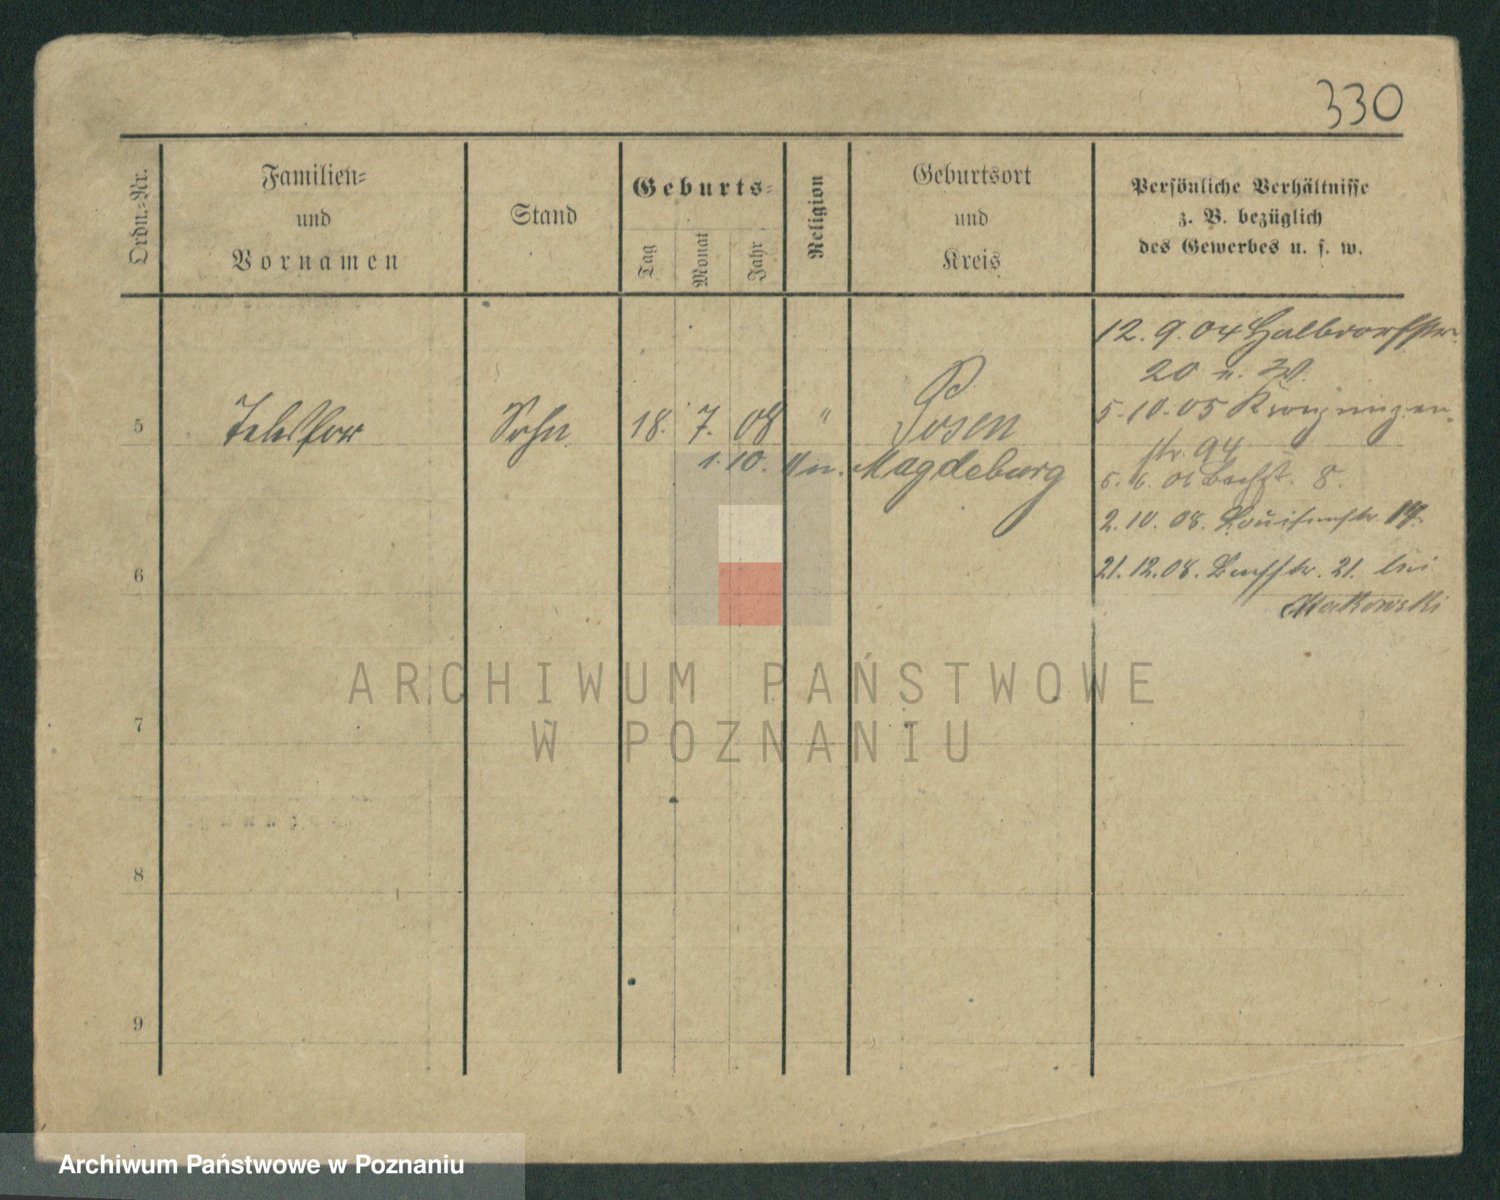 330
Ordn.-Nr.
Familien-
und
Vornamen
Stand
Geburts-
Tag
Monat
Jahr
Religion
Geburtsort
und
Kreis
Persönliche Verhältnisse
z. B. bezüglich
des Gewerbes u. s. w.
12. 9. 04
20
5 Telesfor Sohn 18. 7. 08 " Posen
5. 10. 05
str. 94
1. 10. Magdeburg
5. 6. 06 Bachst. 8.
2. 10. 08. Louisenstr. 19.
6
21. 12. 08. Bachstr. 21. bei
Makowski
ARCHIWUM PAŃSTWOWE
W POZNANIU
7
8
9
Archiwum Państwowe w Poznaniu